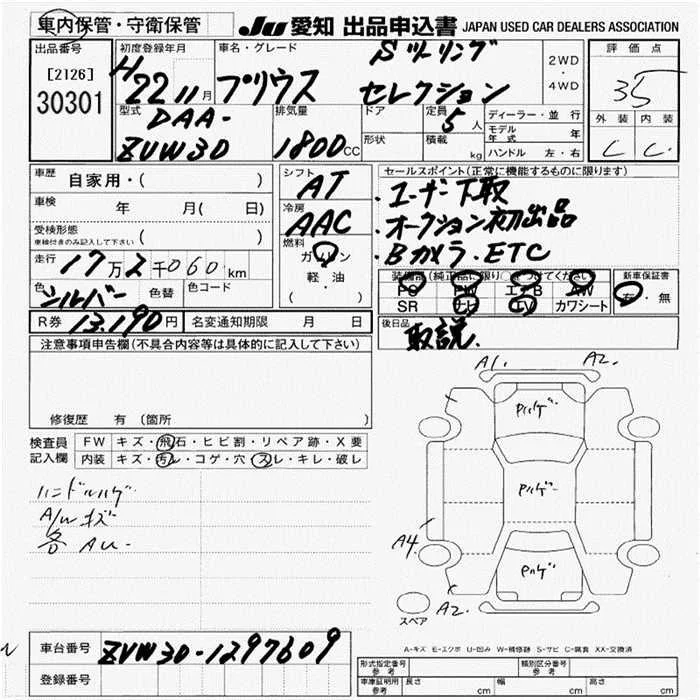 車内保管・守衛保管
JU 愛知 出品申込書 JAPAN USED CAR DEALERS ASSOCIATION
出品番号
[2126]
30301
初度登録年月
H22 11月
車名・グレード
プリウス Sツーリング
セレクション
2WD
・
4WD
評価点
35
外装 内装
C C
型式
DAA-
ZVW30
排気量
1800cc
ドア
形状
定員
5人
積載
kg
ディーラー・並行
モデル年式 年
ハンドル 左・右
車歴
自家用・( )
車検
年 月( 日)
受検形態
車検付きのみ記入して下さい ( )
走行
17万2千060km
色
シルバー
色替
色コード
R券 13,190円
名変通知期限 月 日
シフト
AT
冷房
AAC
燃料
ガソリン
軽・油
( )
セールスポイント(正常に機能するものに限ります)
・ユーザー下取
・オークション初出品
・Bカメラ・ETC
装備欄(純正品に限り○をつけてください)
PS PW エアB AW
SR ナビ TV カワシート
新車保証書
有・無
後日品
取説.
注意事項申告欄(不具合内容等は具体的に記入して下さい)
修復歴 有 (箇所 )
検査員
記入欄
FW キズ・飛石・ヒビ割・リペア跡・X要
内装 キズ・汚レ・コゲ・穴・スレ・キレ・破レ
ハンドルハゲ
A/Wキズ
各AU-
A1. A2.
Pハゲ
Pハゲ
Pハゲ
A4
A2.
スペア
A-キズ E-エクボ U-凹み W-補修跡 S-サビ C-腐食 XX-交換済
車台番号 ZVW30-1297609
登録番号
形式指定番号
参考
類別区分番号
参考
車庫証明用
参考
長さ cm 幅 cm 高さ cm